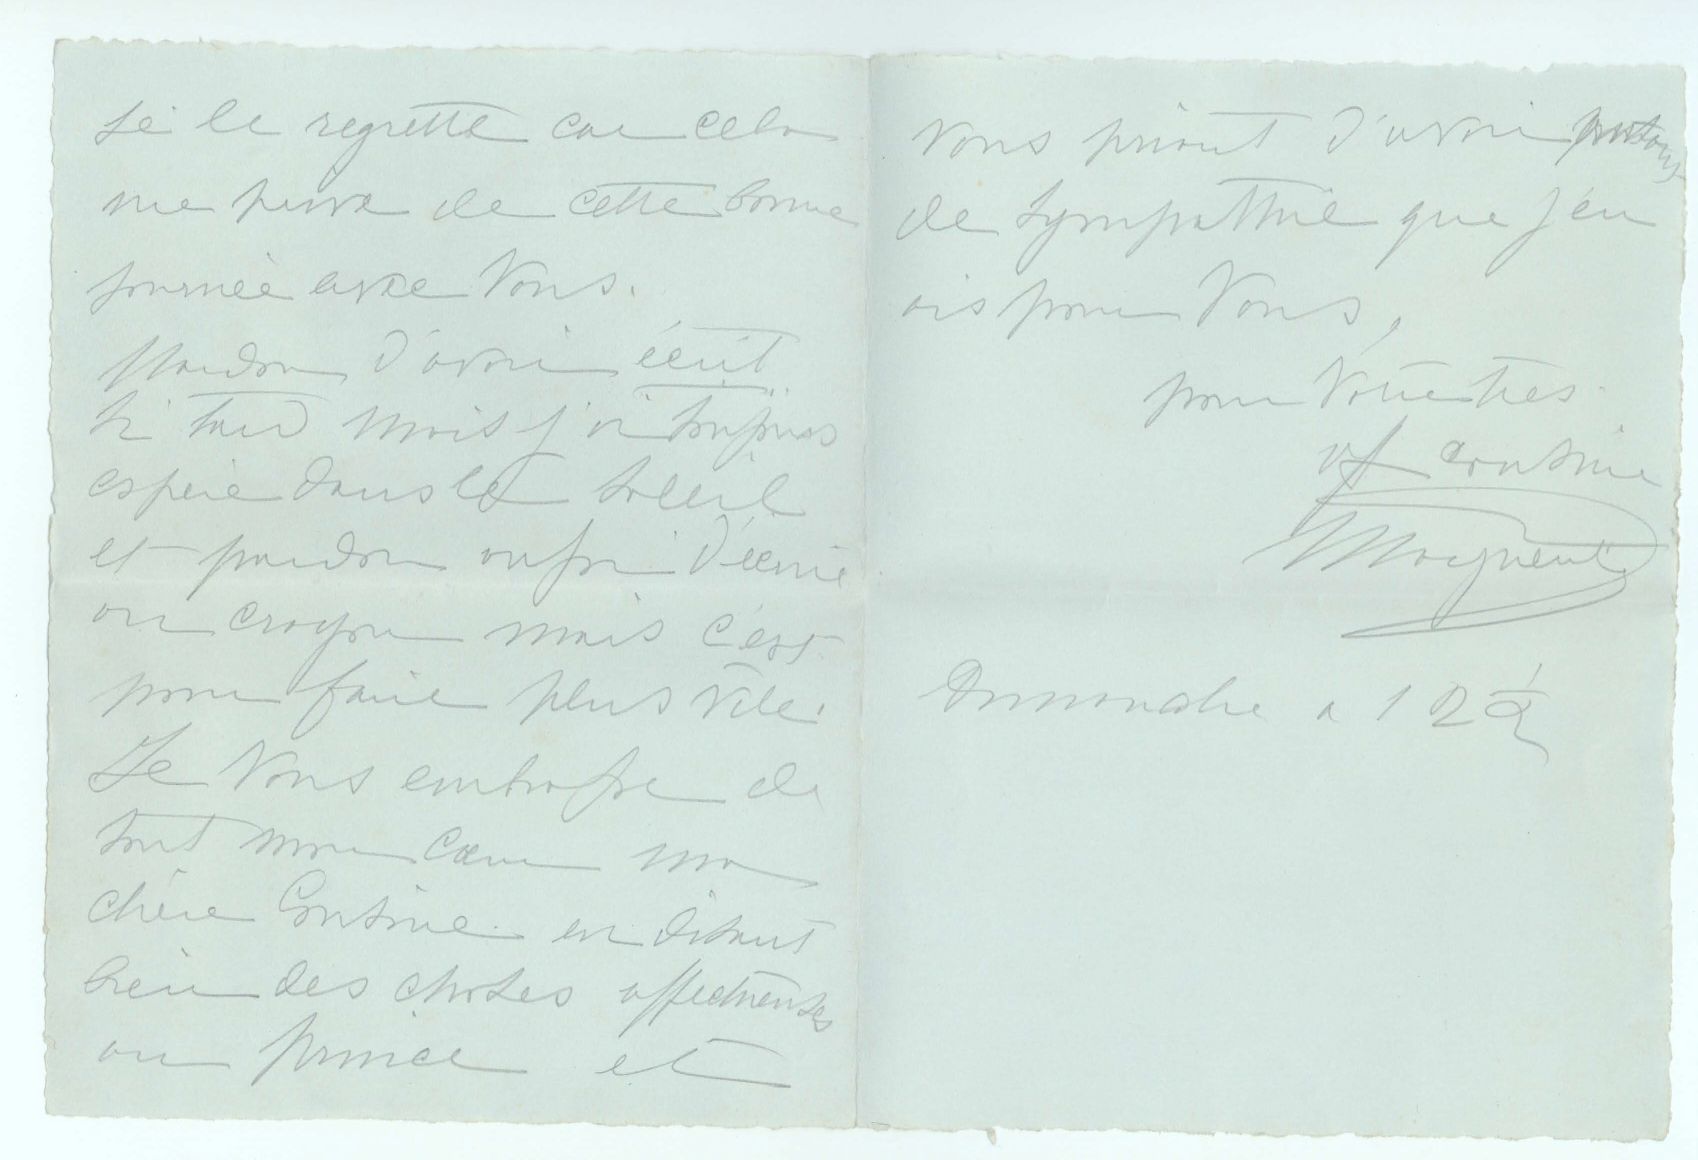 Je le regrette car cela
me prive de cette bonne
journée avec Vous.
Pardon d'avoir écrit
si tard mais j'ai toujours
espéré dans le soleil
et pardon aussi d'écrire
au crayon mais c'est
pour faire plus vite.
Je Vous embrasse de
tout mon cœur ma
chère Cousine en disant
bien des choses affectueuses
au prince et
Vous priant d'avoir autant
de sympathie que j'en
ai pour Vous,
pour Votre très
aff cousine
Marguerite
Dimanche a 12 1/2